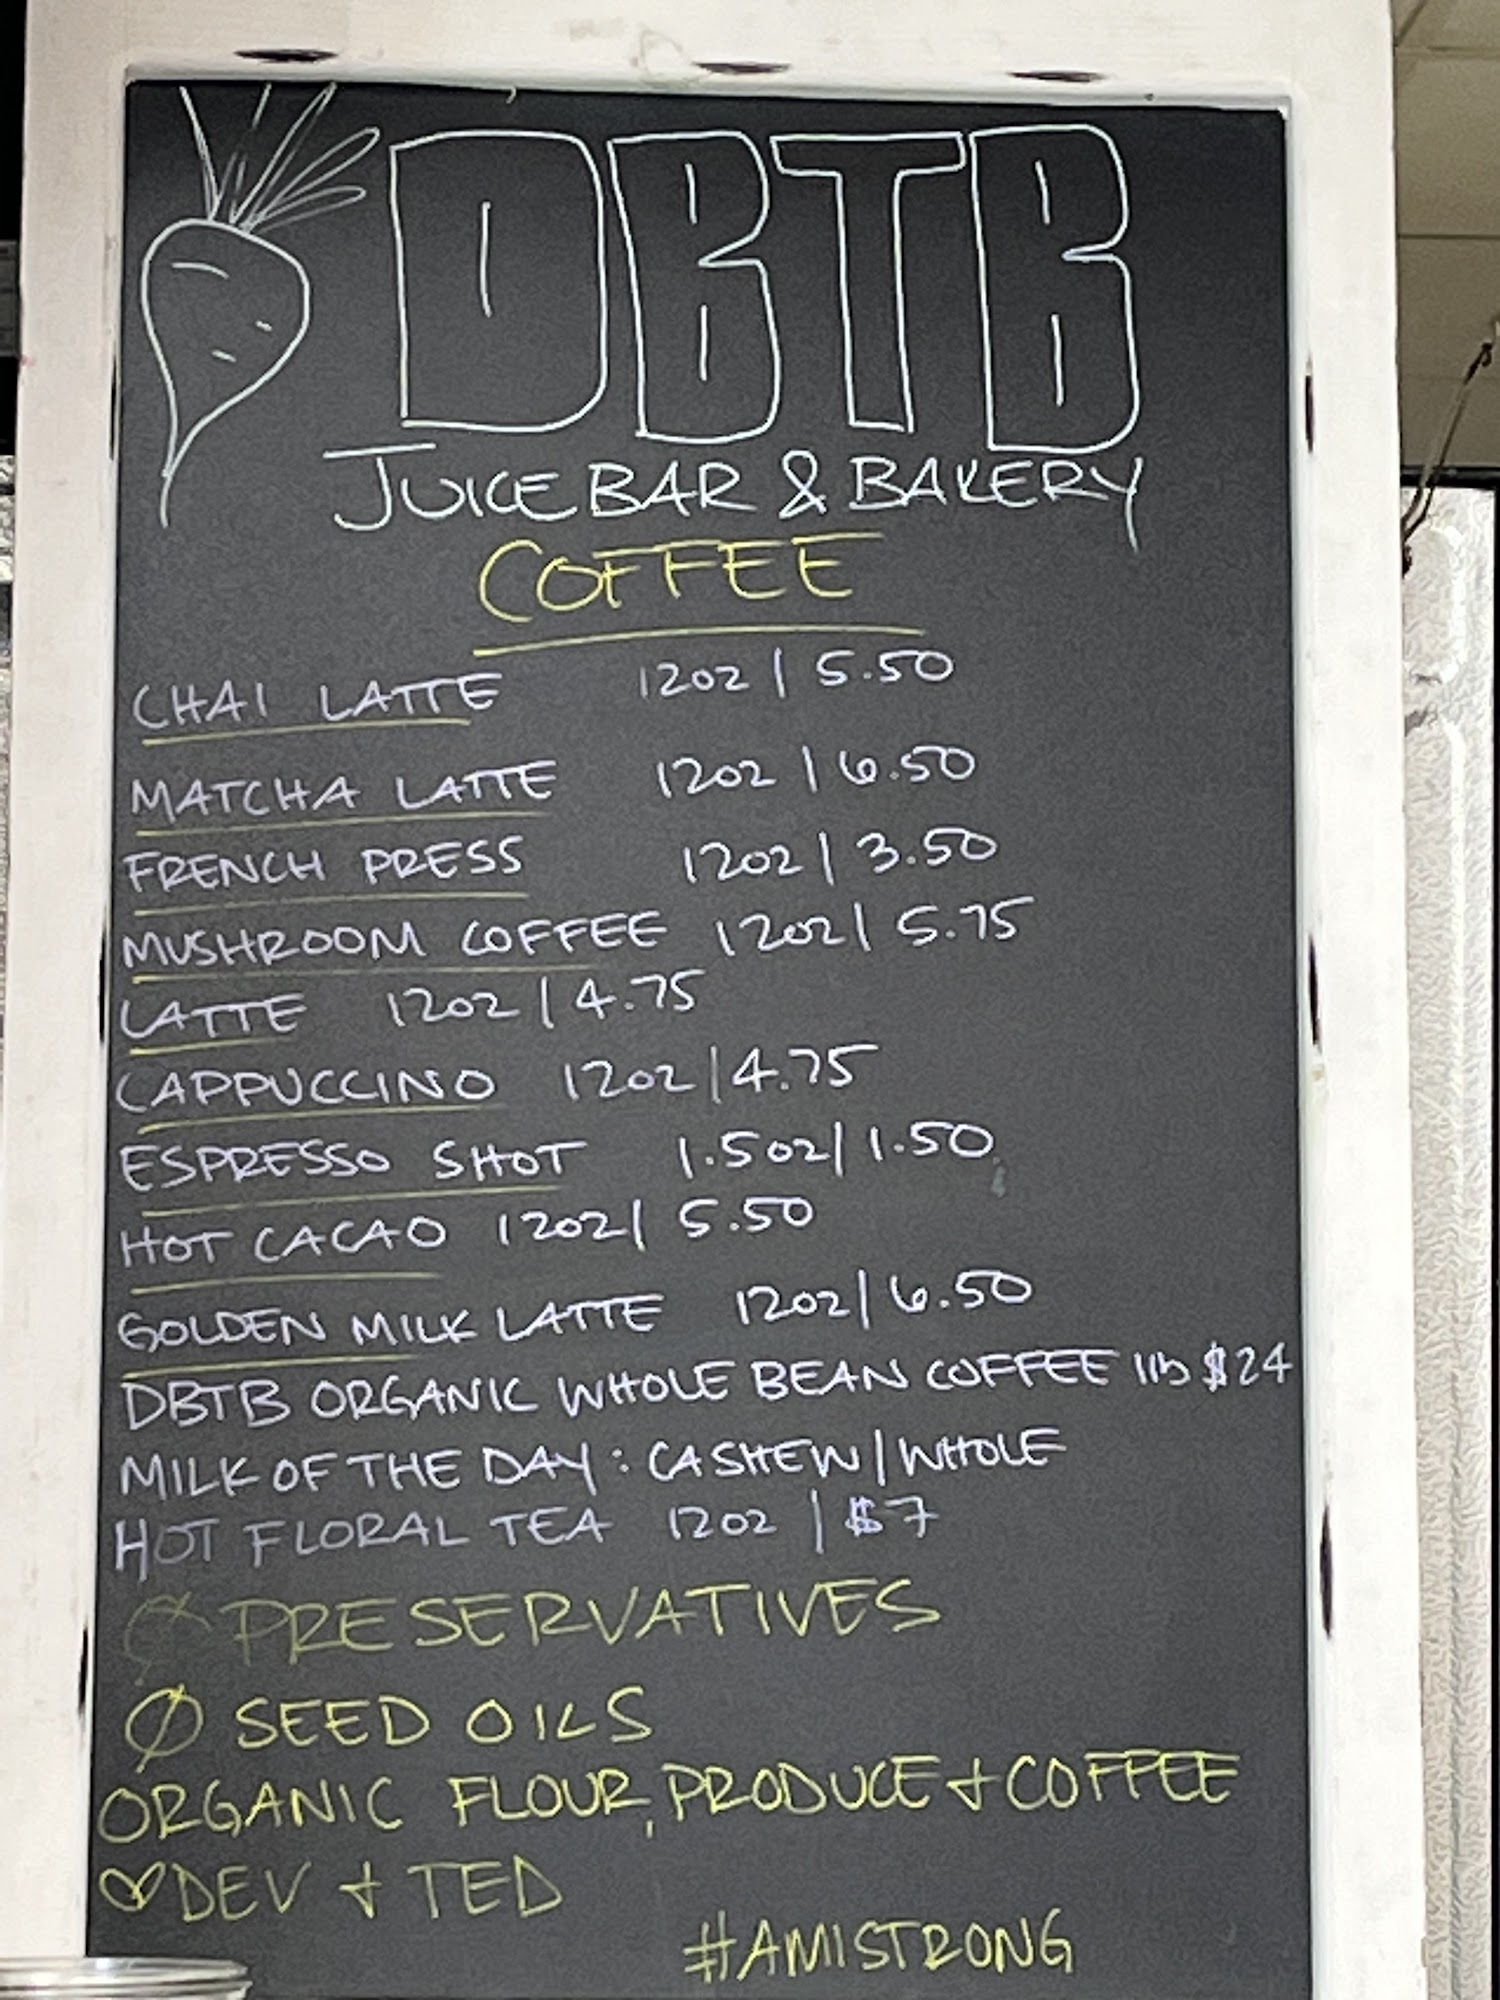 DBTB
JUICE BAR & BAKERY
COFFEE
CHAI LATTE 12oz | 5.50
MATCHA LATTE 12oz | 6.50
FRENCH PRESS 12oz | 3.50
MUSHROOM COFFEE 12oz | 5.75
LATTE 12oz | 4.75
CAPPUCCINO 12oz | 4.75
ESPRESSO SHOT 1.5oz | 1.50
HOT CACAO 12oz | 5.50
GOLDEN MILK LATTE 12oz | 6.50
DBTB ORGANIC WHOLE BEAN COFFEE 1lb $24
MILK OF THE DAY: CASHEW/WHOLE
HOT FLORAL TEA 12oz | $7
Ø PRESERVATIVES
Ø SEED OILS
ORGANIC FLOUR, PRODUCE + COFFEE
♡ DEV + TED
#AMISTRONG